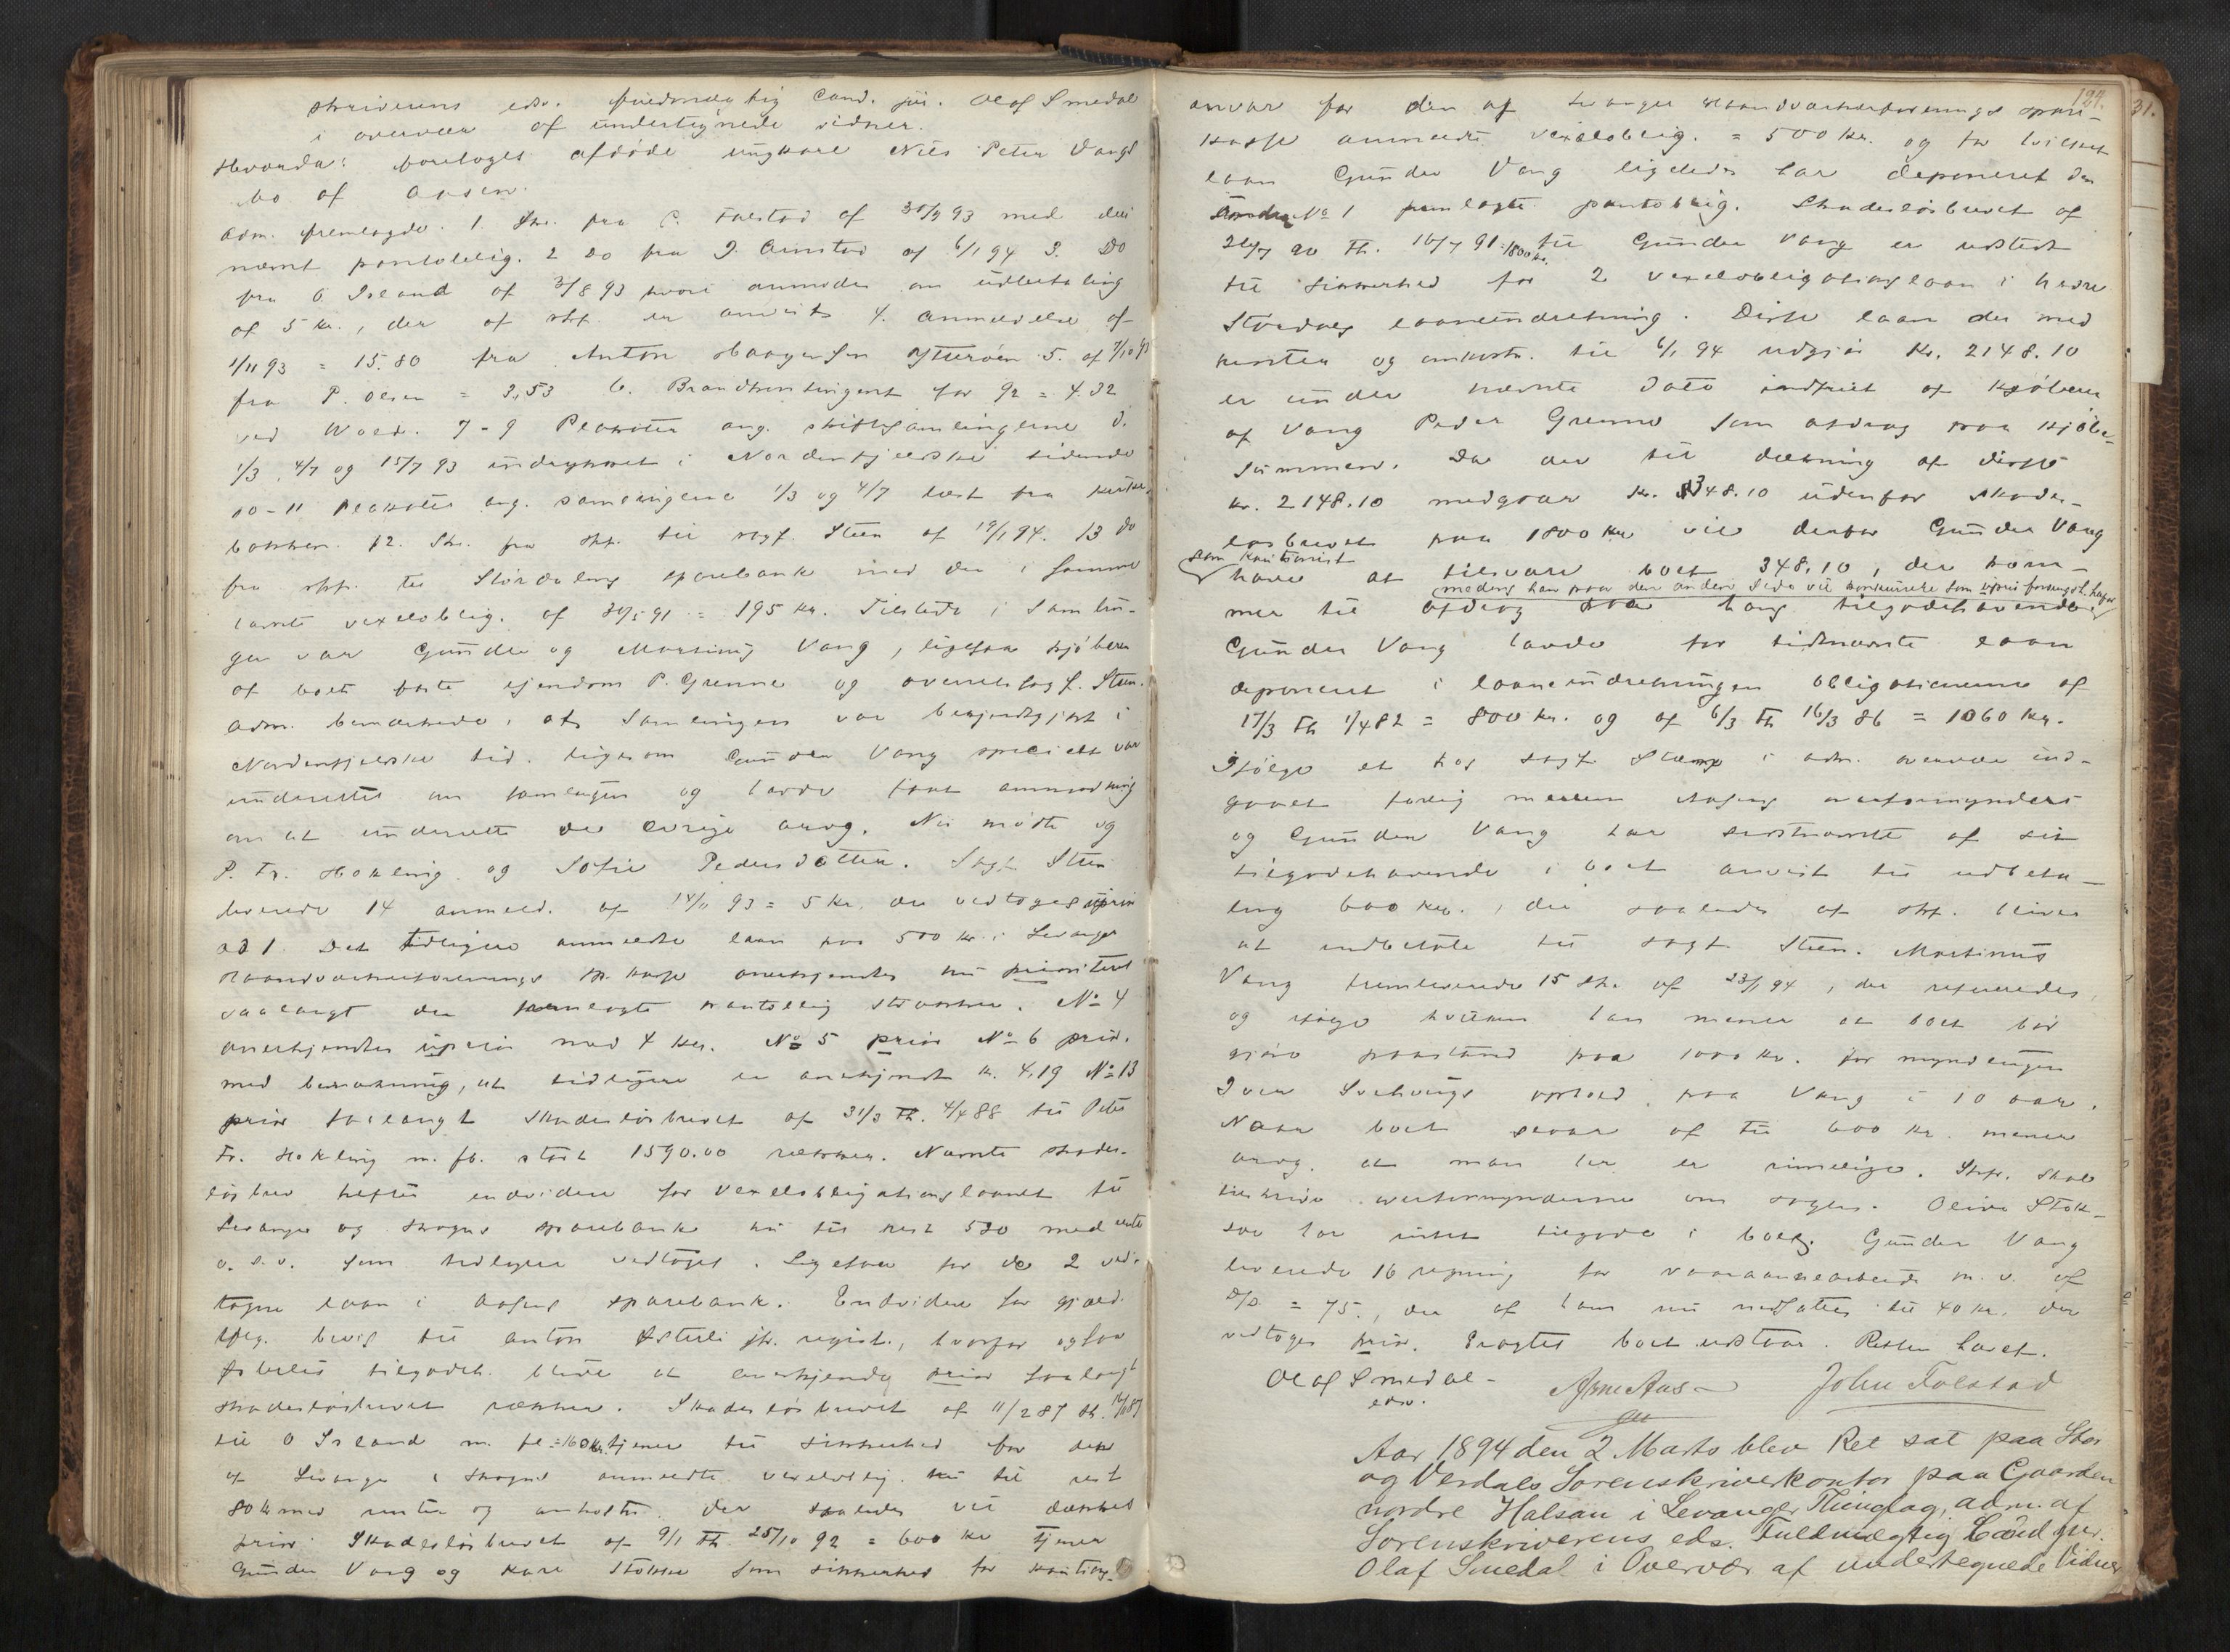 skriverens eds. fuldmægtig Cand. jur. Olaf Smedal
i overvær af undertegnede vidner.
Hvorda: foretoges afdøde ungkarl Nils Peter Vangs
bo af Aasen.
Adm. fremlagde. 1 Skr. fra C. Folstad af 30/9 93 med deri
nævnt pantoblig. 2 Do fra J. Arnstad af 6/1 94 3. Do
fra O. Island af 3/8 93 hvori anmodes om udbetaling
af 5 kr., der af skf. er anvist 4. Anmeldelse af
1/11 93 = 15.80 fra Anton Haagensen Ytterøen 5. af 7/10 93
fra P. Olsen = 3,53 6. Brandkontingent for 92 = 4.32
ved Wold. 7-9 Plakater ang. skiftesamlingerne d.
1/3, 4/7 og 15/7 93 indrykket i Nordenfjeldske tidende
10-11 Plakater ang. samlingerne 1/3 og 4/7 læst fra kirke-
bakken. 12. Skr. fra skf. til sagf. Steen af 19/1 94. 13 do
fra skf. til Størdalens sparebank med den i samme
lånte vexeloblig. af 30/5 91 = 195 kr. Tilstede i samlin-
gen var Gunder og Martinus Vang, ligesaa kjøberen
af boets faste ejendom P. Grenne og overretssagf. Steen.
Adm. bemærkede, at samlingen var bekjendtgjort i
Nordenfjeldske tid. ligesom Gunder Vang specielt var
underrettet om samlingen og havde faat anmodning
om at underrette de øvrige arvg. Nu mødte og
P. Fr. Hokling og Sofie Pedersdatter. Sagf. Steen
leverede 14 anmeld. af 14/11 93 = 5 kr. der vedtoges uprior
ad 1. Det tidligere anmeldte laan paa 500 kr. i Levanger
Haandværkerforenings sp. kasse anerkjendtes nu prioriteret
saalangt den fremlagte pantoblig strækker. No 4
anerkjendtes uprior med 4 kr. No 5 prior No 6 prior.
med bemærkning, at tidligere er anerkjendt kr. 4,19 No 13
prior saalangt skadesløsbrevet af 31/3 Th. 4/4 88 til Peter
Fr. Hokling m. fl. stort 1590.00 rækker. Nævnte skades-
løsbrev hefter endvidere for vexelobligationslaanet til
Levanger og Skogns sparebank nu til rest 520 med rente
o. s. v. som tidligere vedtaget. Ligesaa for de 2 ved-
tagne laan i Aasens sparebank. Endvidere for gjæld-
bevis til Anton Østeli jfr. regist., hvorfor ogsaa
Østelis tilgodeh. bliver at anerkjende prior saalangt
skadesløsbrevet rækker. Skadesløsbrevet af 11/2 87 th.
til O Island m. fl. = 160 kr. tjener til sikkerhed for den
af Levanger & Skogns anmeldte vexeloblig. nu til rest
80 kr med renter og omkostn. der saaledes vil dækkes
prior. Skadesløsbrevet af 9/1 Th. 25/10 92 = 600 kr tjener
Gunder Vang og Kare Stokke som sikkerhed for kautions-
124.
31.
ansvar for den af Levanger Haandværkerforenings spare-
kasse anmeldte vexeloblig. = 500 kr. og for hvilket
laan Gunder Vang ligeledes har deponeret den
under No 1 fremlagte pantoblig. Skadesløsbrevet af
20/7 90 Th. 10/7 91 = 1800 kr. til Gunder Vang er udstedt
til sikkerhed for 2 vexelobligationslaan i nedre
Størdals laaneindretning. Disse laan der med
renter og omkostn. til 6/1 94 udgjør kr. 2148.10
er under nævnte dato indfriet af kjøberen
af Vang Peder Grenne som afdrag paa kjøbe-
summen. Da der til dækning af disse
kr. 2148.10 medgaar kr. 348.10 udenfor skades-
løsbrevet paa 1800 kr vil derfor Gunder Vang
som kautionist
have at tilsvare boet 348,10, der kom-
medens han paa den anden side vil konkurrere som uprior fordringsh.
mer til afdrag paa hans tilgodehavende.
Gunder Vang havde for sidstnævnte laan
deponeret i laaneindretningen obligationerne af
17/3 Th 1/4 82 = 800 kr. og af 6/3 Th 16/3 86 = 1060 kr.
Ifølge et hos sagf. Steen i adm. overvær ind-
gaaet forlig mellem Aasens overformynderi
og Gunder Vang har sidstnævnte af sit
tilgodehavende i boet anvist til udbeta-
ling 600 kr., der saaledes af skf. bliver
at indbetale til sagf. Steen. Martinus
Vang fremleverede 15 skr. af 23/1 94, der refereredes,
og ifølge hvilken han mener at boet bør
gjøre paastand paa 1000 kr. for myndlingen
Iver ophold paa Vang i 10 aar.
Naar boet svarer af til 600 kr. mener
arvg. at man her er rimelige. Skf. skal
tilskrive overformynderne om sagen. Oline Stok-
ke har intet tilgode i boet. Gunder Vang
leverede 16 regning for vaaraannearbeide m. v. af
D/D. = 75., der af ham nu nedsættes til 40 kr. der
vedtoges prior. Iøvrigt boet udstaar. Retten hævet.
Olaf Smedal
eds.
Arne Aas
John Folstad
Aar 1894 den 2 Marts blev Ret sat paa Stør
og Verdals Sorenskriverkontor paa Gaarden
nordre Halsan i Levanger Thinglag, adm. af
Sorenskriverens eds. Fuldmægtig Cand jur.
Olaf Smedal i Overvær af undertegnede Vidner